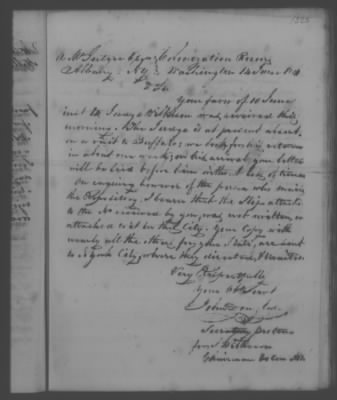 Albany. N.Y. Washington 14 June
Your favor of 10 June
inst to Judge Wilkeson was received this
morning. The Judge is at present absent
on a visit to Buffalo; we look for his return
in about one week; on his arrival, your letter
will be laid before him without loss of time
On enquiring however of the person who mails
the Repository, I learn that the Slip attached
to the No received by you, was not written, or
attached to it in this City. Your Copy with
nearly all the others for your State, are sent
to N York City, where they are directed, & mailed
Very Respectfully
Your Obt Servt
Secretary pro tem
for S Wilkeson
Chairman Ex Com